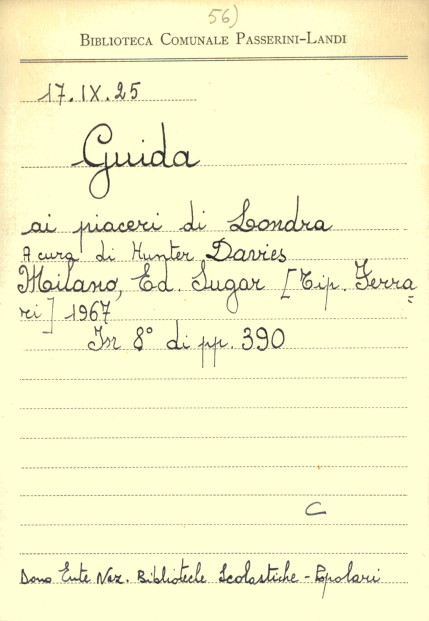 56)
BIBLIOTECA COMUNALE PASSERINI-LANDI
17.IX.25
Guida
ai piaceri di Londra
A cura di Hunter Davies
Milano, Ed. Sugar [Tip. Ferra=
ri] 1967
In 8° di pp. 390
C
Dono Ente Naz. Biblioteche Scolastiche - Popolari